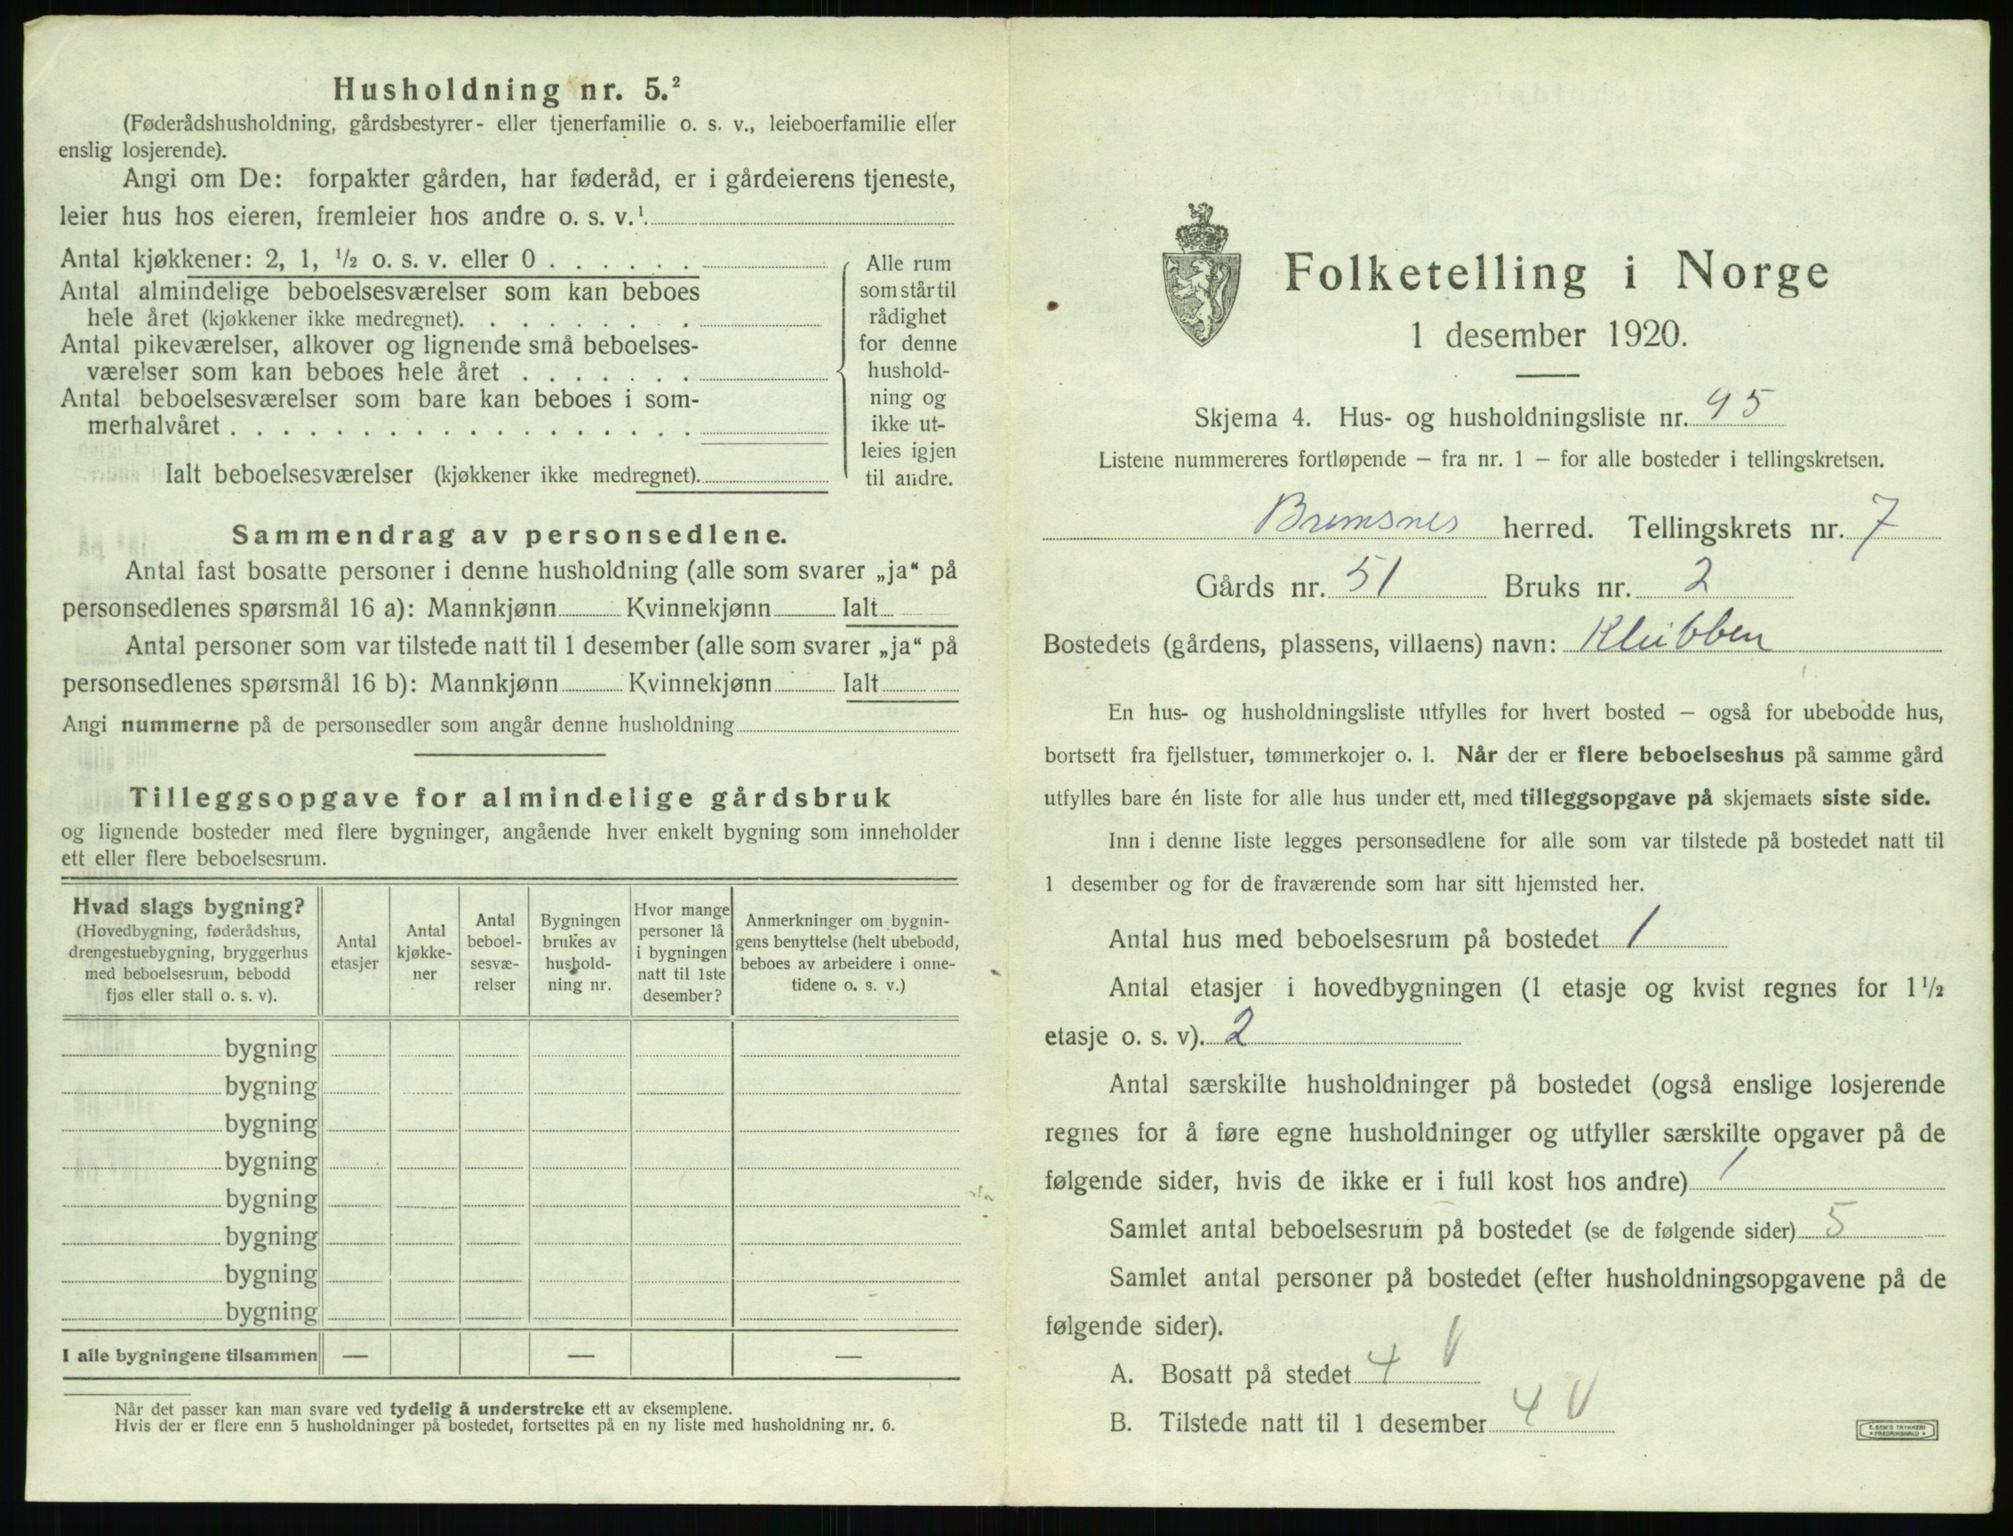 Husholdning nr. 5.²
(Føderådshusholdning, gårdsbestyrer- eller tjenerfamilie o. s. v., leieboerfamilie eller
enslig losjerende).
Angi om De: forpakter gården, har føderåd, er i gårdeierens tjeneste,
leier hus hos eieren, fremleier hos andre o. s. v.¹
Antal kjøkkener: 2, 1, ½ o. s. v. eller 0 . . . . . .
Antal almindelige beboelsesværelser som kan beboes
hele året (kjøkkener ikke medregnet). . . . . . . . .
Antal pikeværelser, alkover og lignende små beboelses-
værelser som kan beboes hele året . . . . . . .
Antal beboelsesværelser som bare kan beboes i som-
merhalvåret . . . . . . . . . . . . . . . . . .
Ialt beboelsesværelser (kjøkkener ikke medregnet).
Alle rum
som står til
rådighet
for denne
hushold-
ning og
ikke ut-
leies igjen
til andre.
Sammendrag av personsedlene.
Antal fast bosatte personer i denne husholdning (alle som svarer „ja“ på
personsedlenes spørsmål 16 a): Mannkjønn Kvinnekjønn Ialt
Antal personer som var tilstede natt til 1 desember (alle som svarer „ja“ på
personsedlenes spørsmål 16 b): Mannkjønn Kvinnekjønn Ialt
Angi nummerne på de personsedler som angår denne husholdning
Tilleggsopgave for almindelige gårdsbruk
og lignende bosteder med flere bygninger, angående hver enkelt bygning som inneholder
ett eller flere beboelsesrum.
Hvad slags bygning?
(Hovedbygning, føderådshus,
drengestuebygning, bryggerhus
med beboelsesrum, bebodd
fjøs eller stall o. s. v).
Antal
etasjer
Antal
kjøkke-
ner
Antal
beboel-
sesvæ-
relser
Bygningen
brukes av
hushold-
ning nr.
Hvor mange
personer lå
i bygningen
natt til 1ste
desember?
Anmerkninger om bygnin-
gens benyttelse (helt ubebodd,
beboes av arbeidere i onne-
tidene o. s. v.)
bygning
bygning
bygning
bygning
bygning
bygning
bygning
bygning
I alle bygningene tilsammen — — —
Når det passer kan man svare ved tydelig å understreke ett av eksemplene.
Hvis der er flere enn 5 husholdninger på bostedet, fortsettes på en ny liste med husholdning nr. 6.
Folketelling i Norge
1 desember 1920.
Skjema 4. Hus- og husholdningsliste nr. 95
Listene nummereres fortløpende – fra nr. 1 – for alle bosteder i tellingskretsen.
Bremsnes herred. Tellingskrets nr. 7
Gårds nr. 51 Bruks nr. 2
Bostedets (gårdens, plassens, villaens) navn: Klubben
En hus- og husholdningsliste utfylles for hvert bosted – også for ubebodde hus,
bortsett fra fjellstuer, tømmerkojer o. l. Når der er flere beboelseshus på samme gård
utfylles bare én liste for alle hus under ett, med tilleggsopgave på skjemaets siste side.
Inn i denne liste legges personsedlene for alle som var tilstede på bostedet natt til
1 desember og for de fraværende som har sitt hjemsted her.
Antal hus med beboelsesrum på bostedet 1
Antal etasjer i hovedbygningen (1 etasje og kvist regnes for 1½
etasje o. s. v). 2
Antal særskilte husholdninger på bostedet (også enslige losjerende
regnes for å føre egne husholdninger og utfyller særskilte opgaver på de
følgende sider, hvis de ikke er i full kost hos andre) 1
Samlet antal beboelsesrum på bostedet (se de følgende sider) 5
Samlet antal personer på bostedet (efter husholdningsopgavene på de
følgende sider).
A. Bosatt på stedet 4
B. Tilstede natt til 1 desember 4